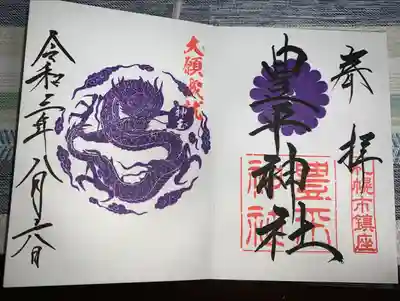 奉拝
札幌市鎮座
豊平神社
豊平神社
大願成就
令和三年八月六日